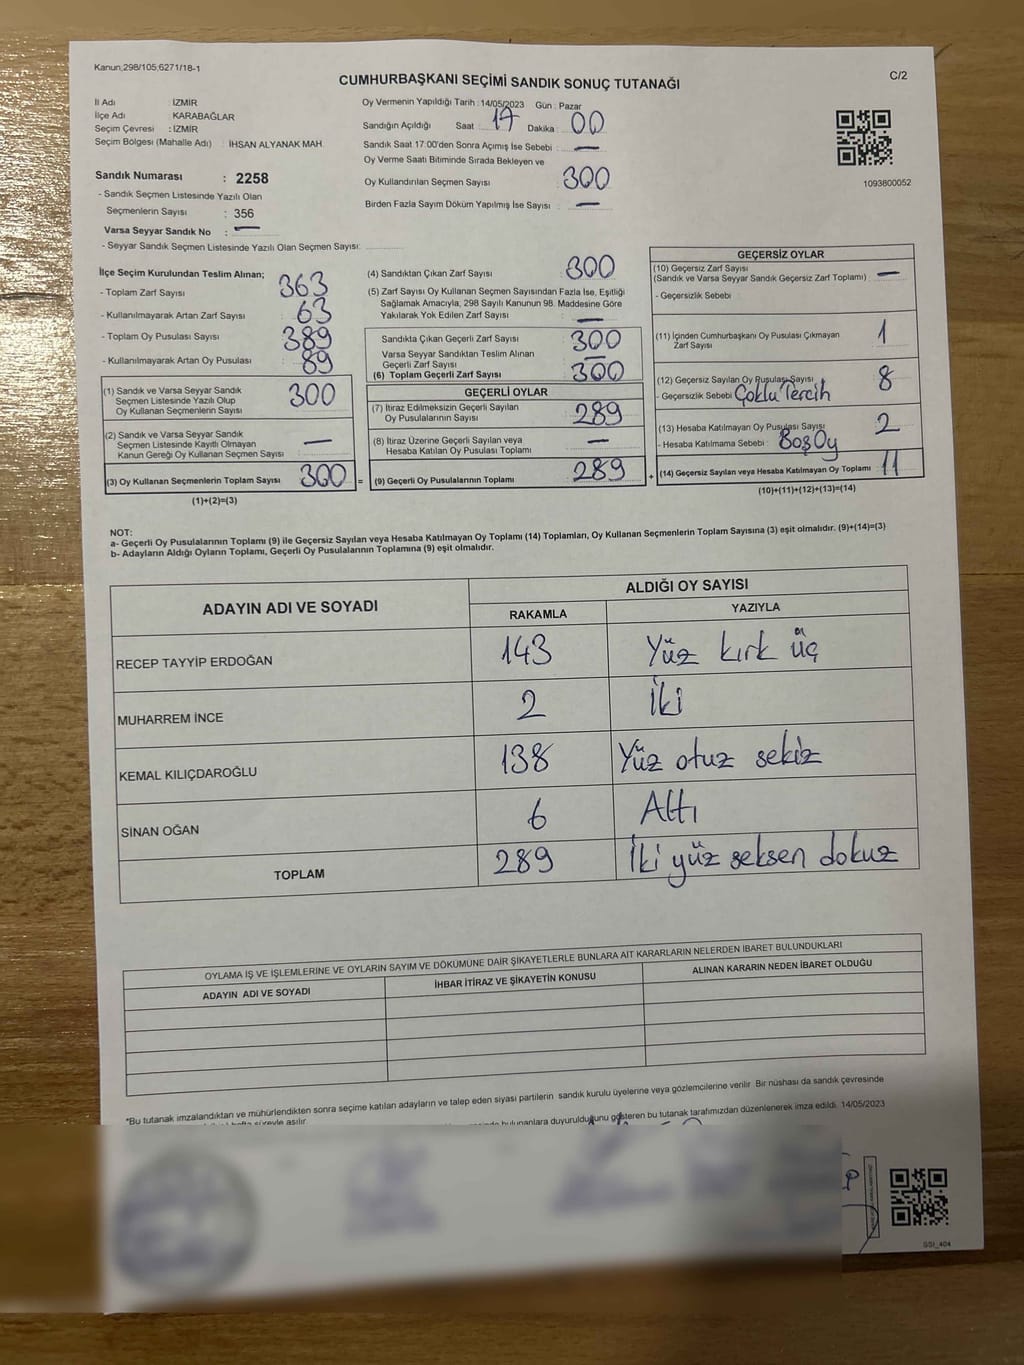 Kanun,298/105,6271/18-1
CUMHURBAŞKANI SEÇİMİ SANDIK SONUÇ TUTANAĞI
C/2
İl Adı : İZMİR
İlçe Adı : KARABAĞLAR
Seçim Çevresi : İZMİR
Seçim Bölgesi (Mahalle Adı) : İHSAN ALYANAK MAH.
Sandık Numarası : 2258
- Sandık Seçmen Listesinde Yazılı Olan
Seçmenlerin Sayısı : 356
Varsa Seyyar Sandık No : —
- Seyyar Sandık Seçmen Listesinde Yazılı Olan Seçmen Sayısı:
Oy Vermenin Yapıldığı Tarih : 14/05/2023 Gün : Pazar
Sandığın Açıldığı Saat : 17 Dakika : 00
Sandık Saat 17:00'den Sonra Açımış İse Sebebi : —
Oy Verme Saati Bitiminde Sırada Bekleyen ve
Oy Kullandırılan Seçmen Sayısı : 300
Birden Fazla Sayım Döküm Yapılmış İse Sayısı : —
1093800052
İlçe Seçim Kurulundan Teslim Alınan;
- Toplam Zarf Sayısı : 363
- Kullanılmayarak Artan Zarf Sayısı : 63
- Toplam Oy Pusulası Sayısı : 389
- Kullanılmayarak Artan Oy Pusulası : 89
(1) Sandık ve Varsa Seyyar Sandık
Seçmen Listesinde Yazılı Olup
Oy Kullanan Seçmenlerin Sayısı 300
(2) Sandık ve Varsa Seyyar Sandık
Seçmen Listesinde Kayıtlı Olmayan
Kanun Gereği Oy Kullanan Seçmen Sayısı —
(3) Oy Kullanan Seçmenlerin Toplam Sayısı 300 =
(1)+(2)=(3)
(4) Sandıktan Çıkan Zarf Sayısı 300
(5) Zarf Sayısı Oy Kullanan Seçmen Sayısından Fazla İse, Eşitliği
Sağlamak Amacıyla, 298 Sayılı Kanunun 98. Maddesine Göre
Yakılarak Yok Edilen Zarf Sayısı : —
Sandıkta Çıkan Geçerli Zarf Sayısı 300
Varsa Seyyar Sandıktan Teslim Alınan
Geçerli Zarf Sayısı —
(6) Toplam Geçerli Zarf Sayısı 300
GEÇERLİ OYLAR
(7) İtiraz Edilmeksizin Geçerli Sayılan
Oy Pusulalarının Sayısı 289
(8) İtiraz Üzerine Geçerli Sayılan veya
Hesaba Katılan Oy Pusulası Toplamı —
(9) Geçerli Oy Pusulalarının Toplamı 289 +
GEÇERSİZ OYLAR
(10) Geçersiz Zarf Sayısı
(Sandık ve Varsa Seyyar Sandık Geçersiz Zarf Toplamı) —
- Geçersizlik Sebebi
(11) İçinden Cumhurbaşkanı Oy Pusulası Çıkmayan
Zarf Sayısı 1
(12) Geçersiz Sayılan Oy Pusulası Sayısı 8
- Geçersizlik Sebebi Çoklu Tercih
(13) Hesaba Katılmayan Oy Pusulası Sayısı 2
- Hesaba Katılmama Sebebi : Boş Oy
(14) Geçersiz Sayılan veya Hesaba Katılmayan Oy Toplamı 11
(10)+(11)+(12)+(13)=(14)
NOT:
a- Geçerli Oy Pusulalarının Toplamı (9) ile Geçersiz Sayılan veya Hesaba Katılmayan Oy Toplamı (14) Toplamları, Oy Kullanan Seçmenlerin Toplam Sayısına (3) eşit olmalıdır. (9)+(14)=(3)
b- Adayların Aldığı Oyların Toplamı, Geçerli Oy Pusulalarının Toplamına (9) eşit olmalıdır.
ADAYIN ADI VE SOYADI
ALDIĞI OY SAYISI
RAKAMLA YAZIYLA
RECEP TAYYİP ERDOĞAN 143 Yüz kırk üç
MUHARREM İNCE 2 İki
KEMAL KILIÇDAROĞLU 138 Yüz otuz sekiz
SİNAN OĞAN 6 Altı
TOPLAM 289 İki yüz seksen dokuz
OYLAMA İŞ VE İŞLEMLERİNE VE OYLARIN SAYIM VE DÖKÜMÜNE DAİR ŞİKAYETLERLE BUNLARA AİT KARARLARIN NELERDEN İBARET BULUNDUKLARI
ADAYIN ADI VE SOYADI İHBAR İTİRAZ VE ŞİKAYETİN KONUSU ALINAN KARARIN NEDEN İBARET OLDUĞU
"Bu tutanak imzalandıktan ve mühürlendikten sonra seçime katılan adayların ve talep eden siyasi partilerin sandık kurulu üyelerine veya gözlemcilerine verilir. Bir nüshası da sandık çevresinde
hafta süreyle asılır. bulunanlara duyurulduğunu gösteren bu tutanak tarafımızdan düzenlenerek imza edildi. 14/05/2023
GSI_404